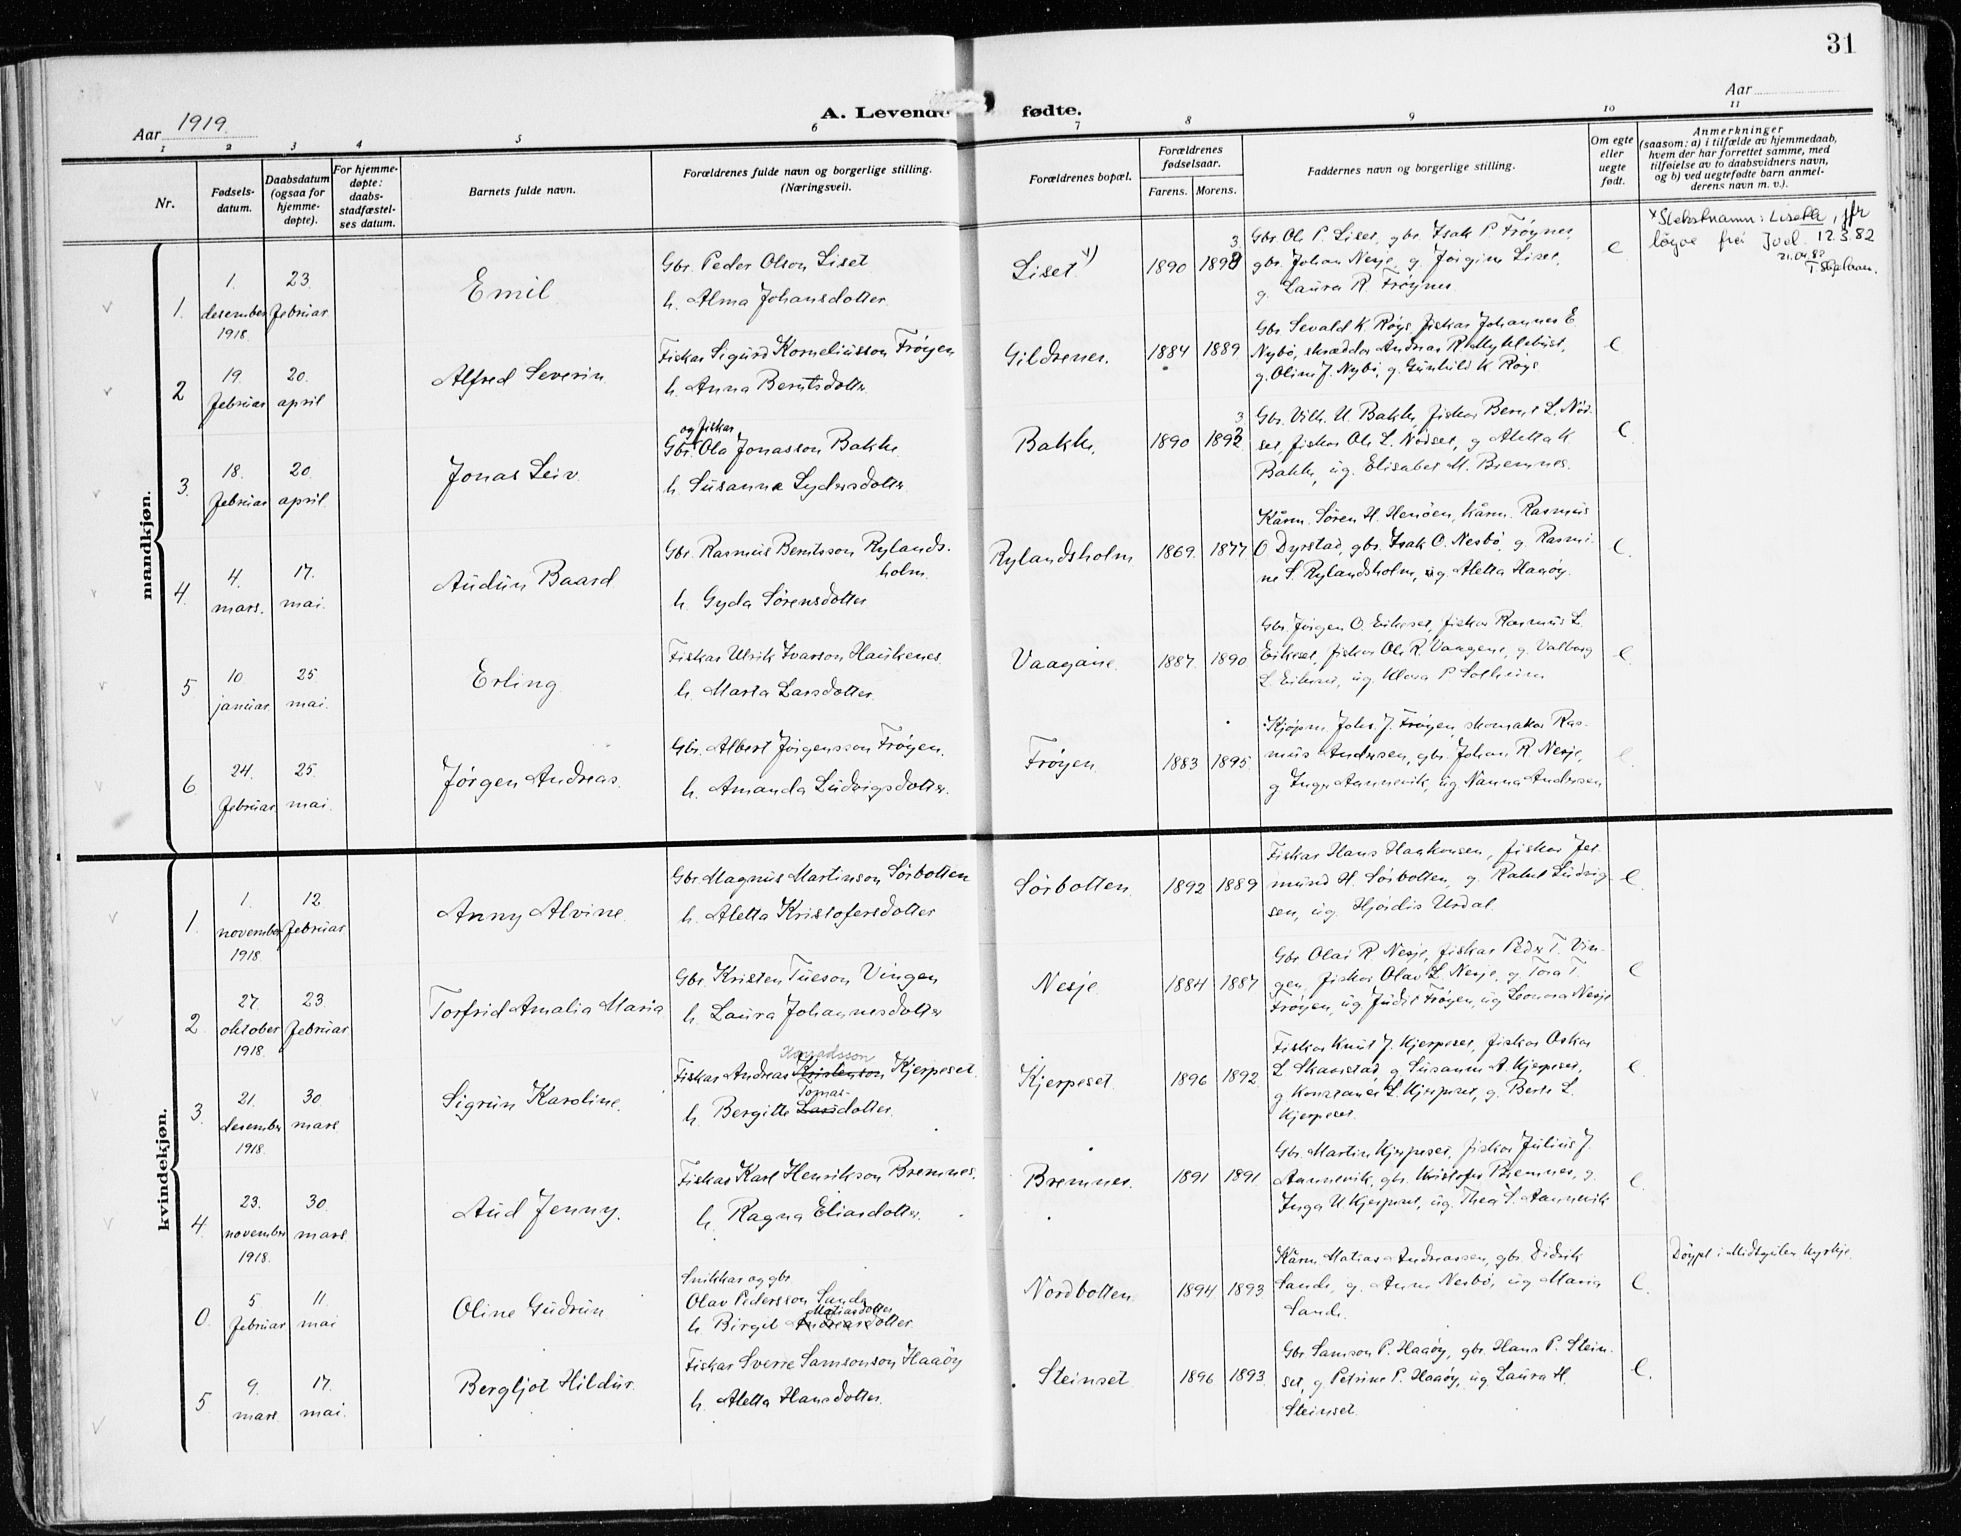 31
Aar 1919.
A. Levende fødte.
Aar
1 2 3 4 5 6 7 8 9 10 11
Nr.
Fødsels-
datum.
Daabsdatum
(ogsaa for
hjemme-
døpte).
For hjemme-
døpte:
daabs-
stadfæstel-
ses datum.
Barnets fulde navn.
Forældrenes fulde navn og borgerlige stilling.
(Næringsvei).
Forældrenes bopæl.
Forældrenes
fødselsaar.
Farens. Morens.
Faddernes navn og borgerlige stilling.
Om egte
eller
uegte
født.
Anmerkninger
(saasom: a) i tilfælde av hjemmedaab,
hvem der har forrettet samme, med
tilføielse av to daabsvidners navn,
og b) ved uegtefødte barn anmel-
derens navn m. v.).
mandkjøn.
1.
1.
desember
1918.
23.
februar
Emil
Gbr. Peder Olson Liset
h. Alma Johansdotter
Liset
1890 1893
Gbr. Ole P. Liset, gbr. Isak P. Frøynes,
gbr. Johan Nesje, g. Jørgine Liset,
g. Laura R. Frøynes
e
Slektsnamn: Liseth, jfr
løyve frå Jvd. 12.3.82
21.04.82
2
19.
februar
20.
april
Alfred Severin
Fiskar Sigurd Korneliusson Frøyen
h. Anna Berntsdotter
Gildrenes.
1884 1889
Gbr. Sevald K. Røys, fiskar Johannes E
Nybø, skrædder Andreas R. Myklebust,
g. Oline J. Nybø, g. Gunhild K. Røys
e
3.
18.
februar
20.
april.
Jonas Leiv
og fiskar
Gbr. Ola Jonasson Bakke.
h. Susanne Lydersdotter
Bakke,
1890 1893
Gbr. Vilh. U. Bakke, fiskar Bernt L. Nød-
set, fiskar Ole L. Nødset, g Aletta K.
Bakke, ug. Elisabet M. Bremnes.
e
4.
4.
mars.
17.
mai.
Audun Baard
Gbr. Rasmus Berntsson Rylands-
holm.
h. Gyda Sørensdotter
Rylandsholm
1869. 1877
Kårm. Søren H. Henøen, kårm. Rasmus
O Dyrstad, gbr. Isak O. Nesbø, g Rasmi-
ne S. Rylandsholm, ug. Aletta Haaøy.
e.
5
10.
januar
25
mai.
Erling
Fiskar Ulrik Ivarson Haukenes.
h. Maria Larsdotter
Vaagane.
1887. 1890
Gbr. Jørgen O. Eikeset, fiskar Rasmus L.
Eikeset, fiskar Ole R. Vaagene, g. Valborg
L. Eikeset, ug. Klara P Solheim
e.
6
24.
februar
25.
mai.
Jørgen Andreas.
Gbr. Albert Jørgensson Frøyen.
h. Amanda Ludvigsdotter.
Frøyen.
1883 1895
Kjøpm. Johs. J. Frøyen, skomakar Ras-
mus Andersen, gbr. Johan R. Nesje,
g Inga Aannevik, ug Nanna Andersen
e.
kvindekjøn.
1.
1.
november
1918.
12.
februar.
Anny Alvine.
Gbr. Magnus Martinson Sørbotten
h. Aletta Kristofersdotter
Sørbotten.
1892 1889
Fiskar Hans Haakonsen, fiskar Jer-
mund H. Sørbotten, g. Rakel Ludvig-
sen, ug. Hjørdis Urdal.
e.
2
27.
oktober
1918.
23.
februar
Torfrid Amalia Maria
Gbr. Kristen Tueson Vingen
h. Laura Johannesdotter
Nesje
1884 1887
Gbr Olai R Nesje, fiskar Peder T. Vin-
gen, fiskar Olav L. Nesje, g. Tora T.
Frøyen, ug Judit Frøyen, ug Leonora Nesje
e
3.
21.
desember
1918.
30
mars.
Sigrun Karoline.
Konradsson
Fiskar Andreas Kristenson Kjerpeset.
Tomas-
h. Bergitte Larsdotter.
Kjerpeset.
1896 1892
Fiskar Knut J. Kjerpeset, fiskar Oskar
L Skarstad g Susanne A. Kjerpeset,
g. Konstanse L. Kjerpeset, g. Berte L.
Kjerpeset.
e.
4
23.
november
1918.
30.
mars.
Aud Jenny.
Fiskar Karl Henrikson Bremnes.
h. Ragna Eliasdotter.
Bremnes.
1891 1891
Gbr. Martin Kjerpeset, fiskar Julius J.
Aannevik, gbr. Kristofer Bremnes, g.
Inga U. Kjerpeset, ug. Thea S. Aannevik
e.
0.
5.
februar
11.
mai
Oline Gudrun
Snikkar og gbr.
Olav Pedersson Sande
Matiasdotter
h. Birgit Andreasdotter
Nordbotten
1894 1893
Kårm Matias Andreassen, gbr. Didrik
Sande, g. Anne Nesbø, ug Maria
Sande.
e.
Døypt i Midtgulen kyrkje.
5.
9.
mars.
17.
mai.
Bergljot Hildur.
Fiskar Sverre Samsonson Haaøy
h. Aletta Hansdotter
Steinset
1896 1893.
Gbr Samson P. Haaøy, gbr. Hans P. Stein-
set, g. Petrine P. Haaøy, ug Laura H.
Steinset.
e.